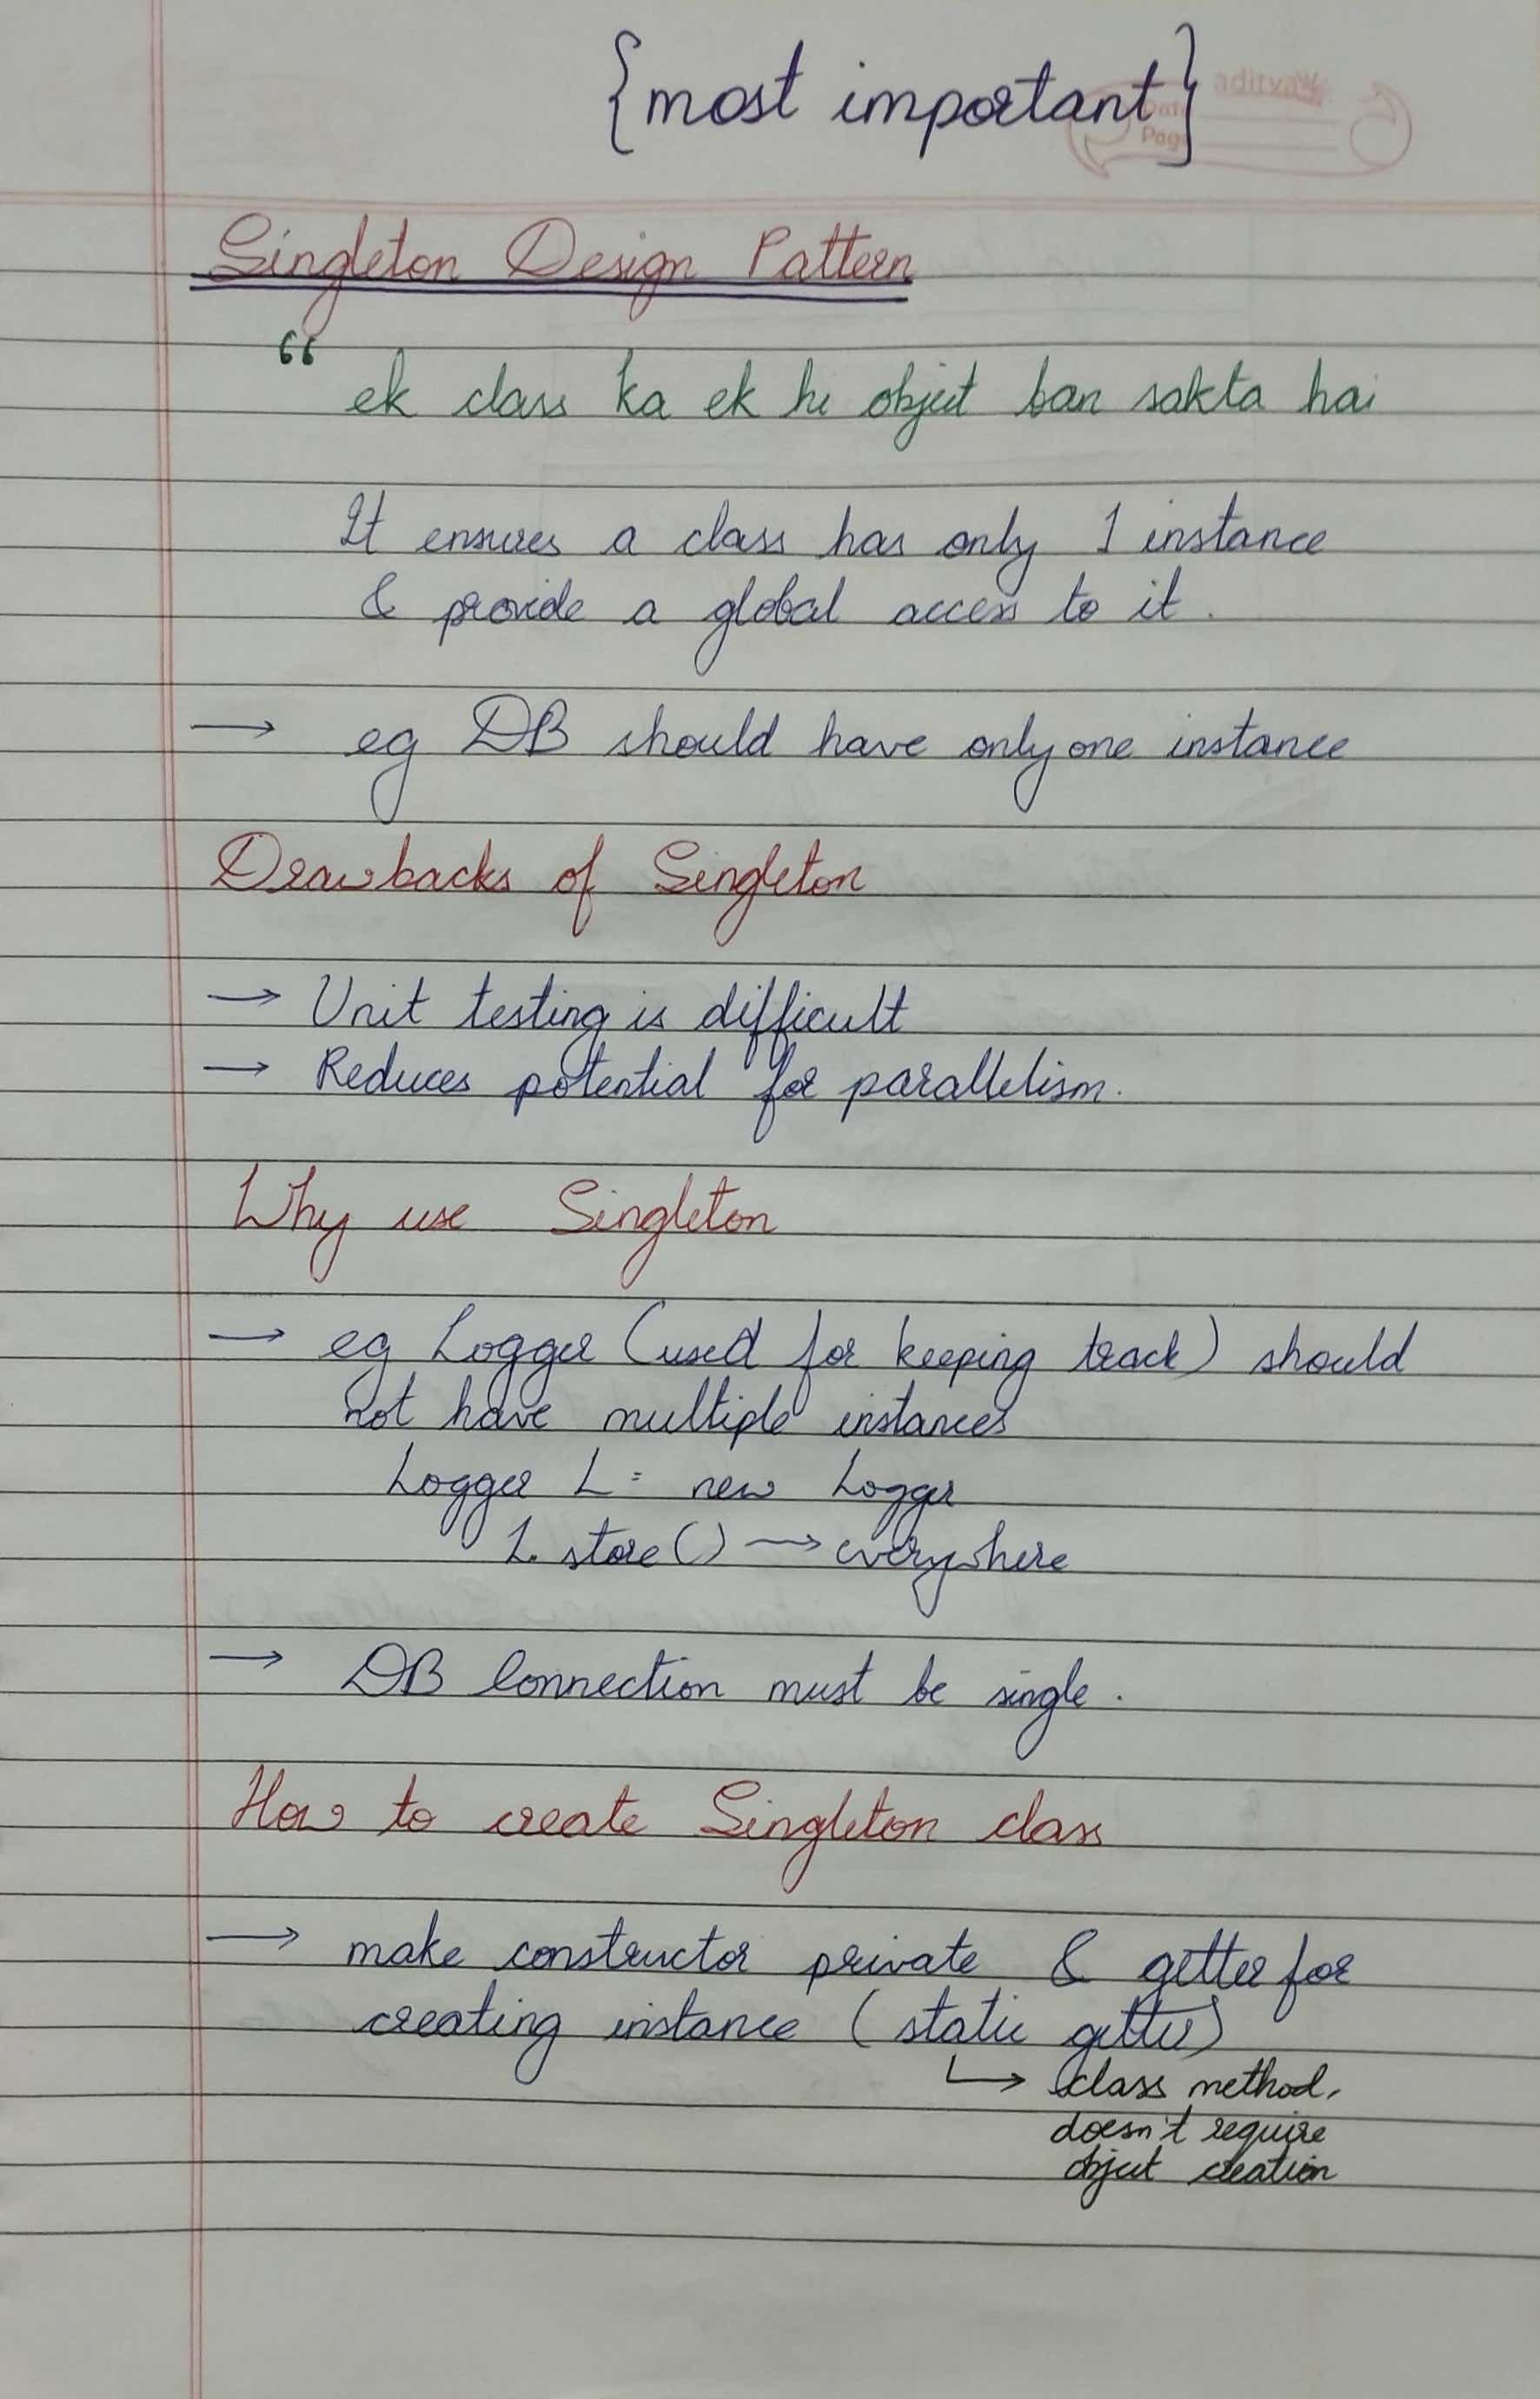 {most important}
aditya
Date
Page
Singleton Design Pattern
“ ek class ka ek hi object ban sakta hai
It ensures a class has only 1 instance
& provide a global access to it.
→ eg DB should have only one instance
Drawbacks of Singleton
→ Unit testing is difficult
→ Reduces potential for parallelism.
Why use Singleton
→ eg Logger (used for keeping track) should
not have multiple instances
Logger L = new Logger
L. store() → everywhere
→ DB Connection must be single.
How to create Singleton class
→ make constructor private & getter for
creating instance (static getter)
↳ class method,
doesn't require
object creation